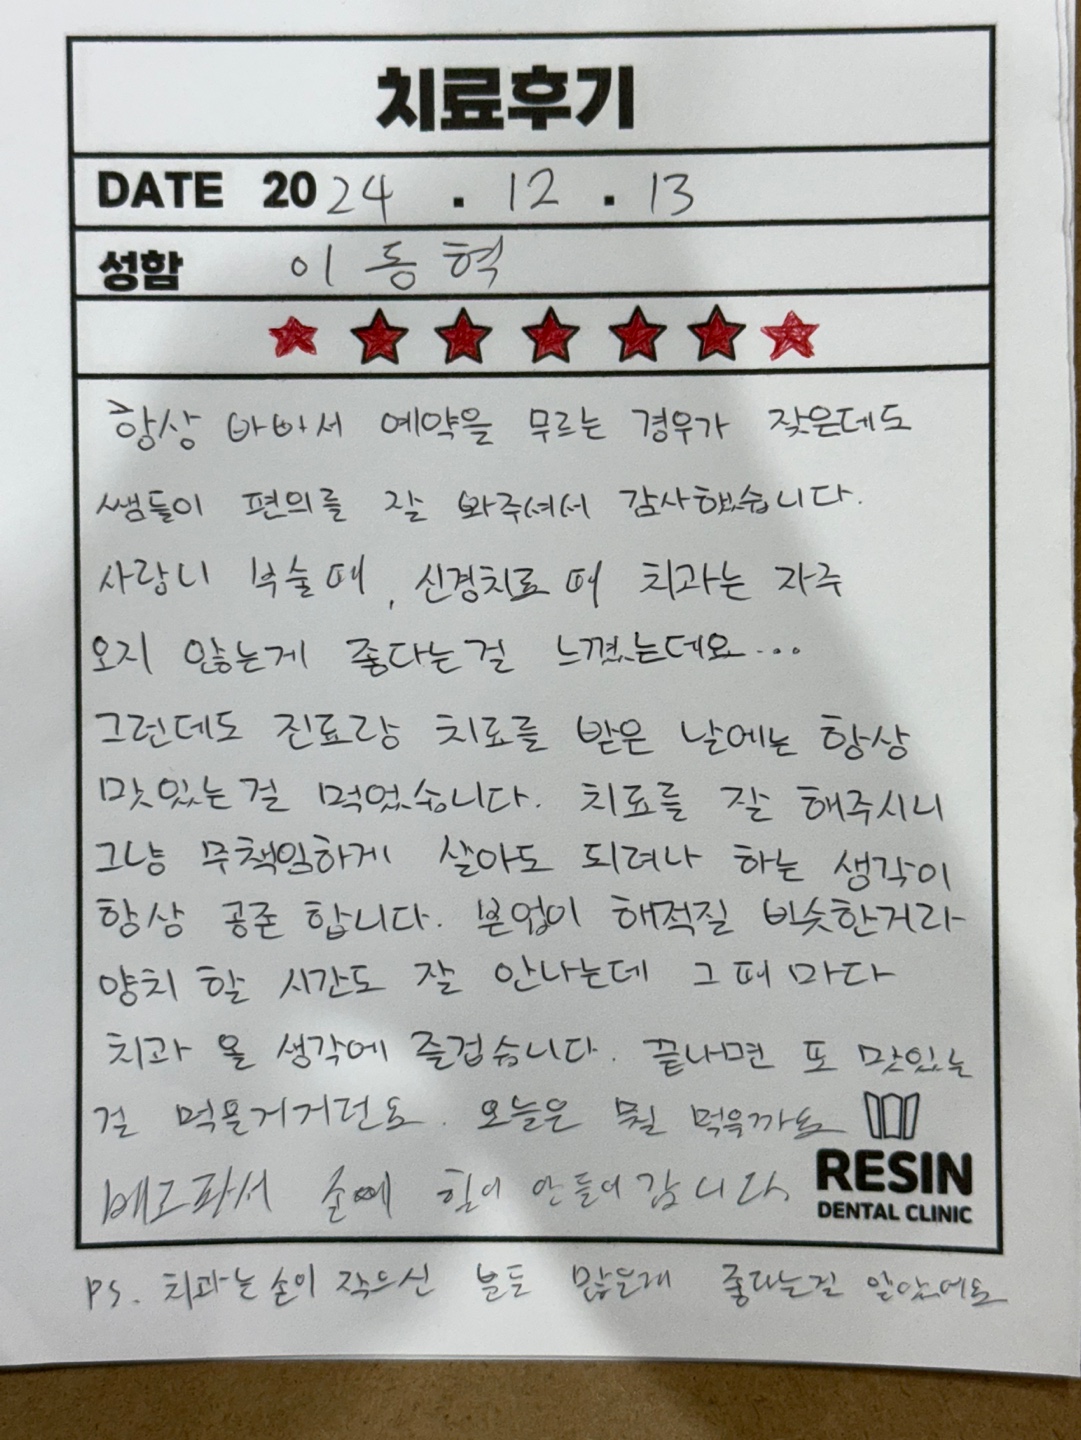 치료후기
DATE 2024 . 12 . 13
성함 이동혁
항상 바빠서 예약을 무르는 경우가 잦은데도
쌤들이 편의를 잘 봐주셔서 감사했습니다.
사랑니 부술때, 신경치료 때 치과는 자주
오지 않는게 좋다는걸 느꼈는데요...
그런데도 진료랑 치료를 받은 날에는 항상
맛있는걸 먹었습니다. 치료를 잘 해주시니
그냥 무책임하게 살아도 되려나 하는 생각이
항상 공존 합니다. 본업이 해적질 비슷한거라
양치 할 시간도 잘 안나는데 그때마다
치과 올 생각에 즐겁습니다. 끝나면 또 맛있는
걸 먹을거거던요. 오늘은 뭘 먹을까요
배고파서 손에 힘이 안들어갑니다
RESIN
DENTAL CLINIC
PS. 치과는 손이 작으신 분들 많은게 좋다는걸 알았어요